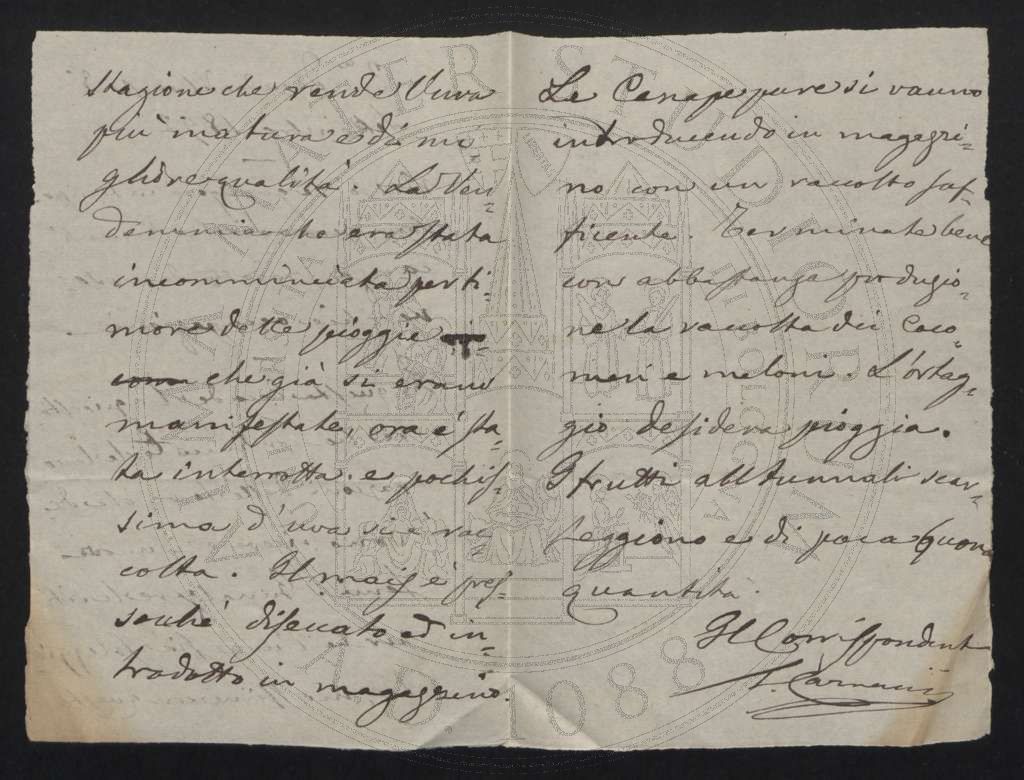 stagione che rende l'uva
più matura e di mi
gliore qualità. La Ven=
demmia che era stata
incominciata per ti=
more delle pioggie
che già si erano
manifestate, ora è sta=
ta interrotta e pochis=
sima d'uva si è rac=
colta. Il mais è pres=
sochè disecato ed in=
trodotto in magazzino.
Le Canape pure si vanno
introducendo in magazzi=
no con un raccolto suf=
ficente. Terminate bene
con abbastanza produzio=
ne la raccolta dei Coco=
meri e meloni. L'ortag=
gio desidera pioggia.
I frutti auttunnali scar=
seggiono e di poca
quantità.
Il Corrisspondent
ALMA MATER STUDIORUM
A.D. 1088